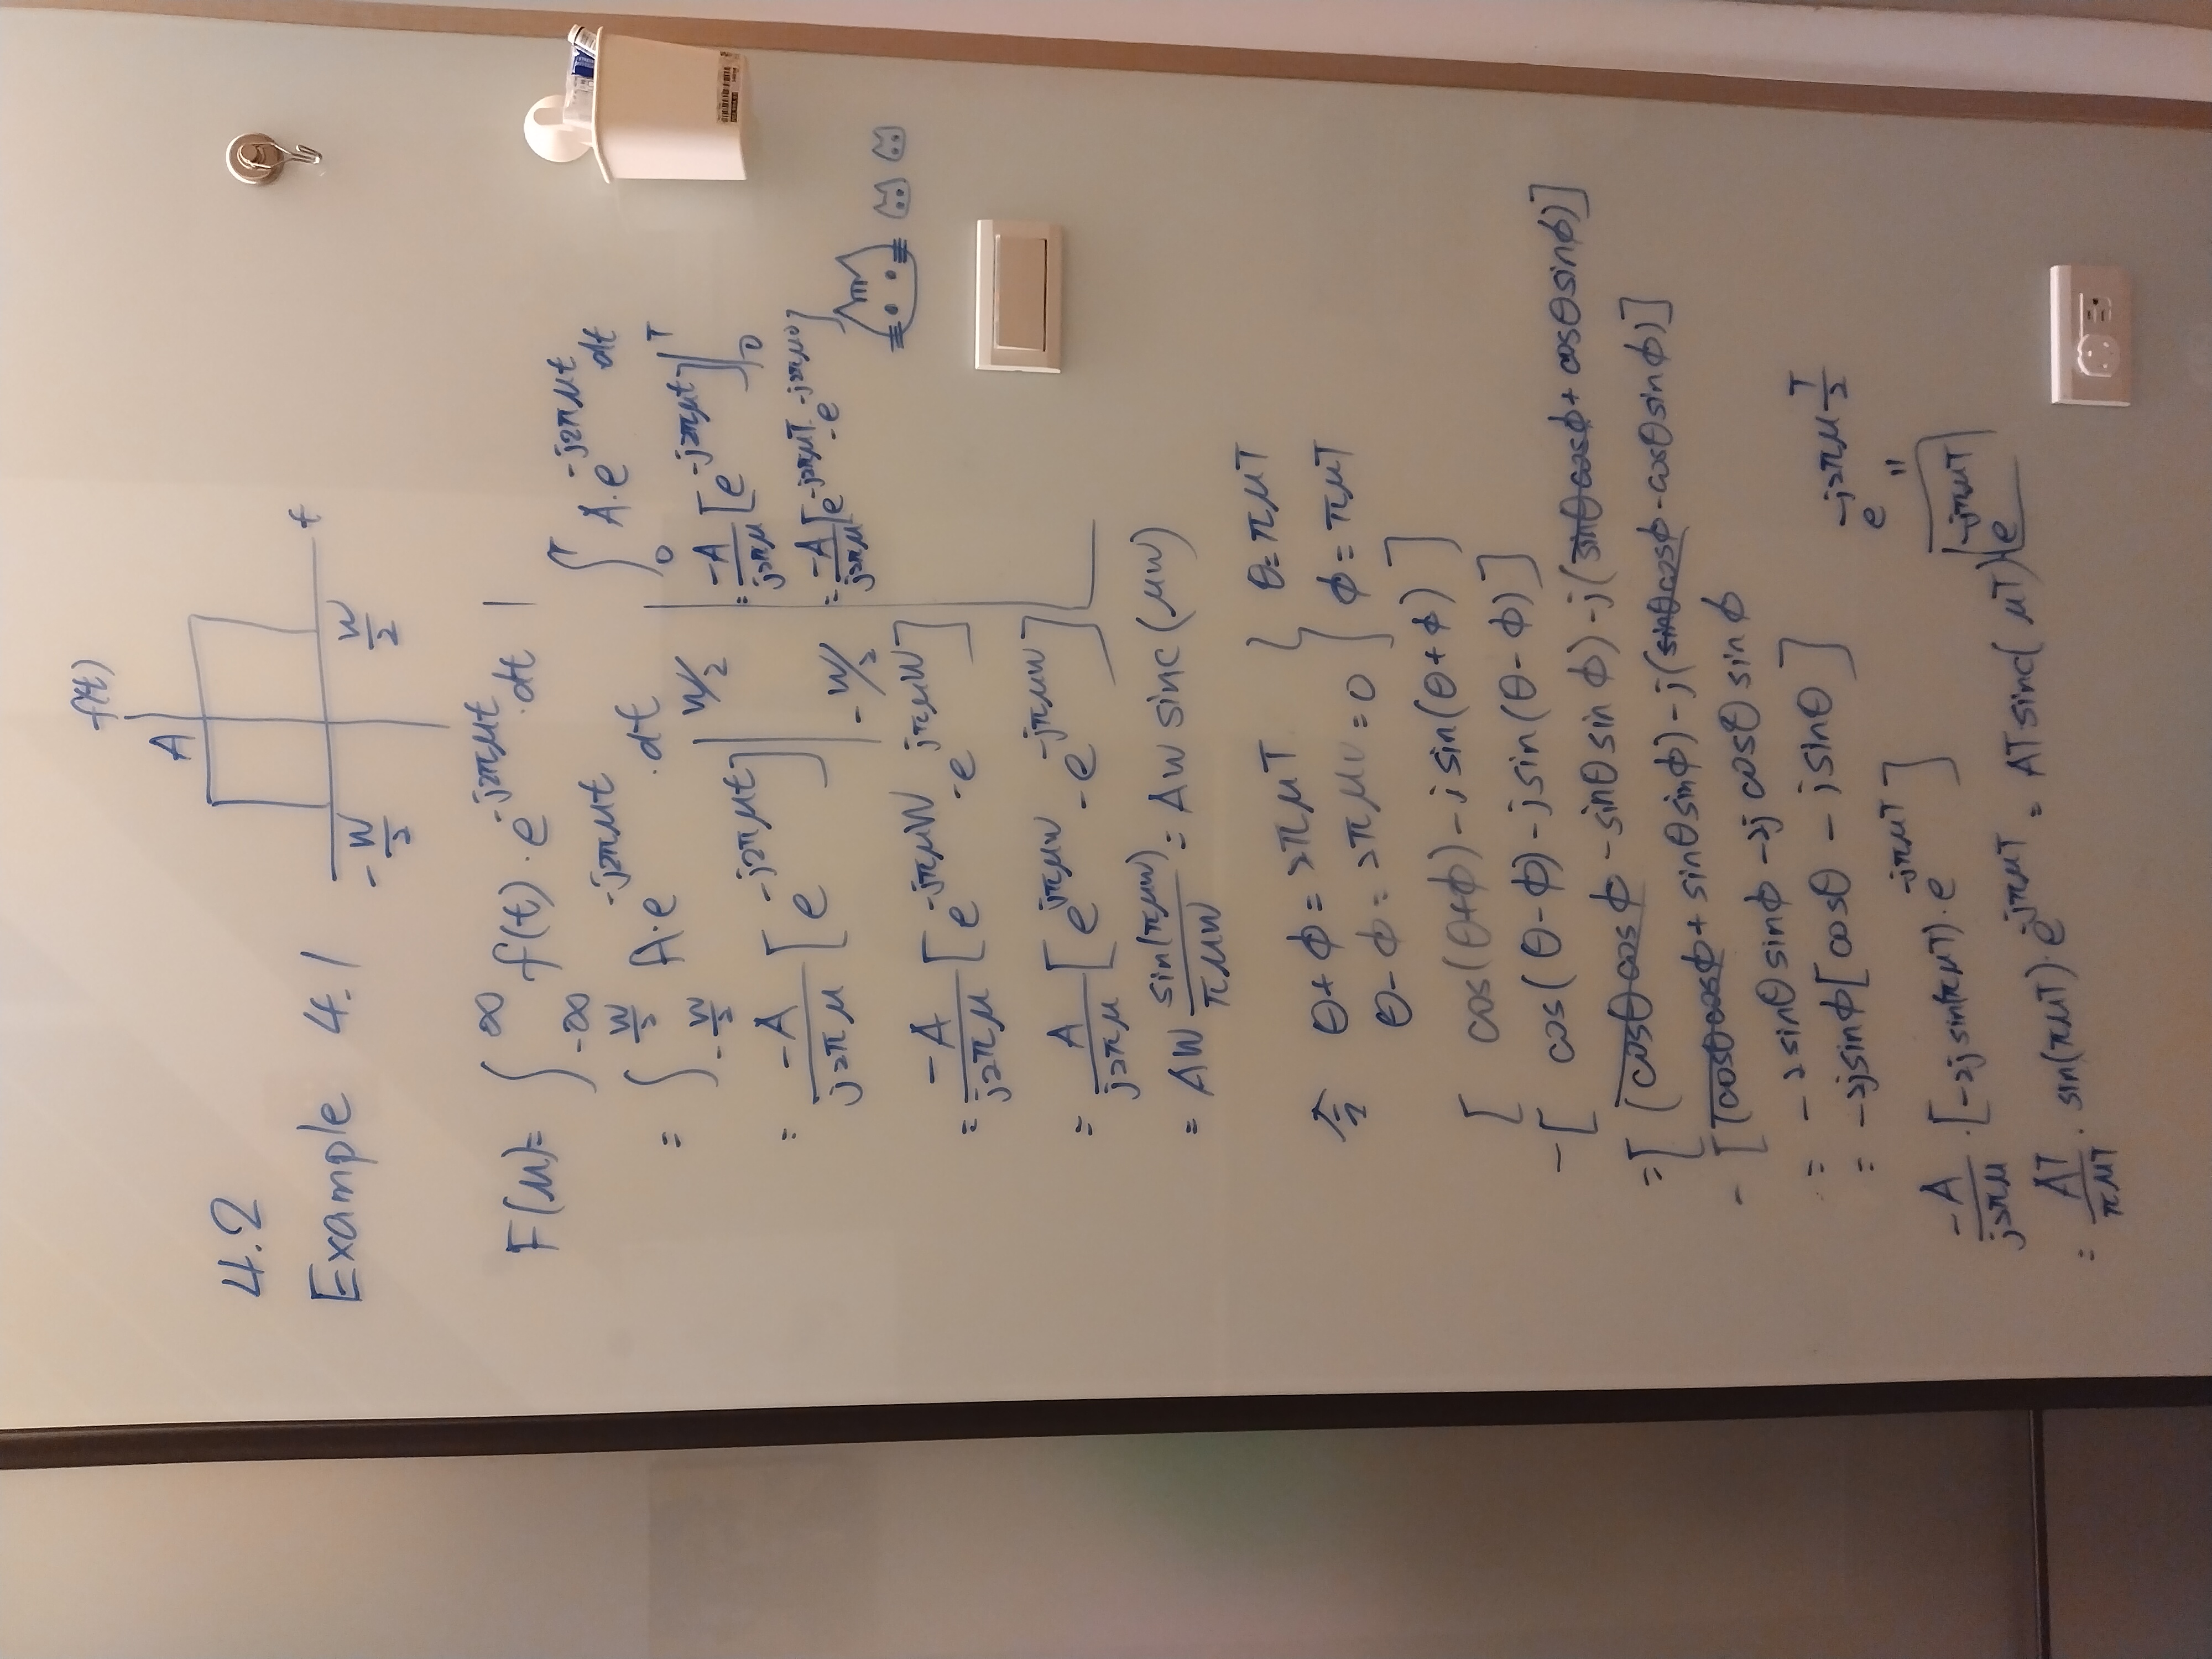 f(t)
A
4.2
Example 4.1
t
-W/2
W/2
F(μ)= ∫_{-∞}^{∞} f(t)·e^{-j2πμt}·dt
= ∫_{-W/2}^{W/2} A·e^{-j2πμt}·dt
= -A/(j2πμ) [e^{-j2πμt}] |_{-W/2}^{W/2}
= -A/(j2πμ) [e^{-jπμW} - e^{jπμW}]
= A/(j2πμ) [e^{jπμW} - e^{-jπμW}]
= AW sin(πμW)/(πμW) = AW sinc(μW)
∫_0^T A·e^{-j2πμt} dt
= -A/(j2πμ) [e^{-j2πμt}] |_0^T
= -A/(j2πμ) [e^{-j2πμT} - e^{-j2πμ0}]
令 θ+ϕ = 2πμT } θ = πμT
θ-ϕ = 2πμ0 = 0 } ϕ = πμT
[ cos(θ+ϕ) - j sin(θ+ϕ) ]
-[ cos(θ-ϕ) - j sin(θ-ϕ) ]
=[ (cosθ cosϕ - sinθ sinϕ) - j(sinθ cosϕ + cosθ sinϕ)]
- [(cosθ cosϕ + sinθ sinϕ) - j(sinθ cosϕ - cosθ sinϕ)]
= -2 sinθ sinϕ - 2j cosθ sinϕ
= -2j sinϕ [cosθ - j sinθ ]
-A/(j2πμ) · [-2j sin(πμT)·e^{-jπμT}]
e^{-j2πμ T/2}
=
= AT/(πμT) · sin(πμT)·e^{-jπμT} = AT sinc( μT)·e^{-jπμT}